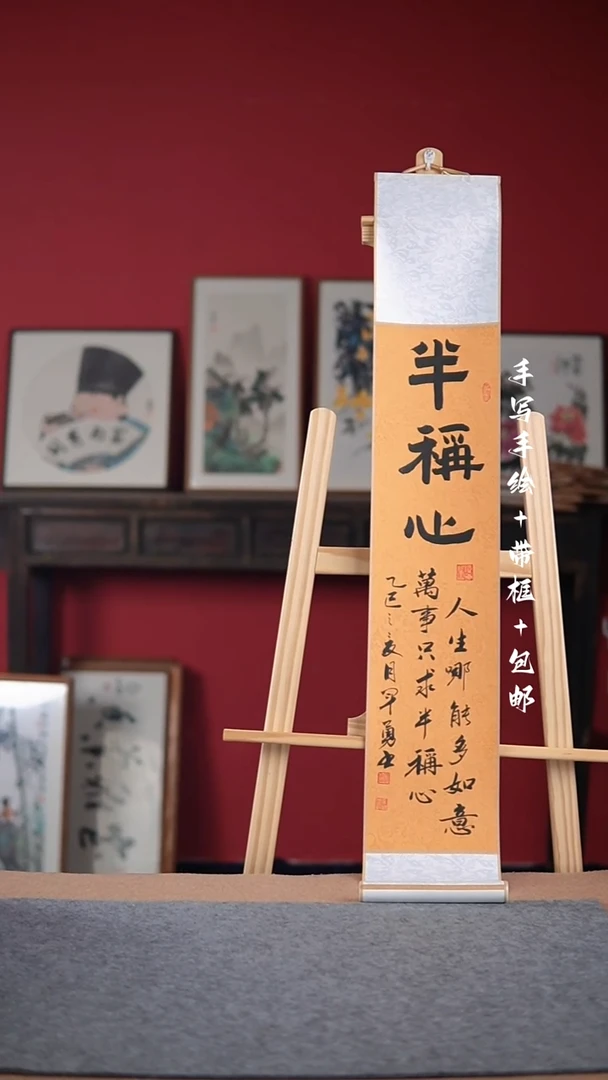 半稱心
人生哪能多如意
萬事只求半稱心
乙巳之亥月軍勇書
手写手绘+带框+包邮